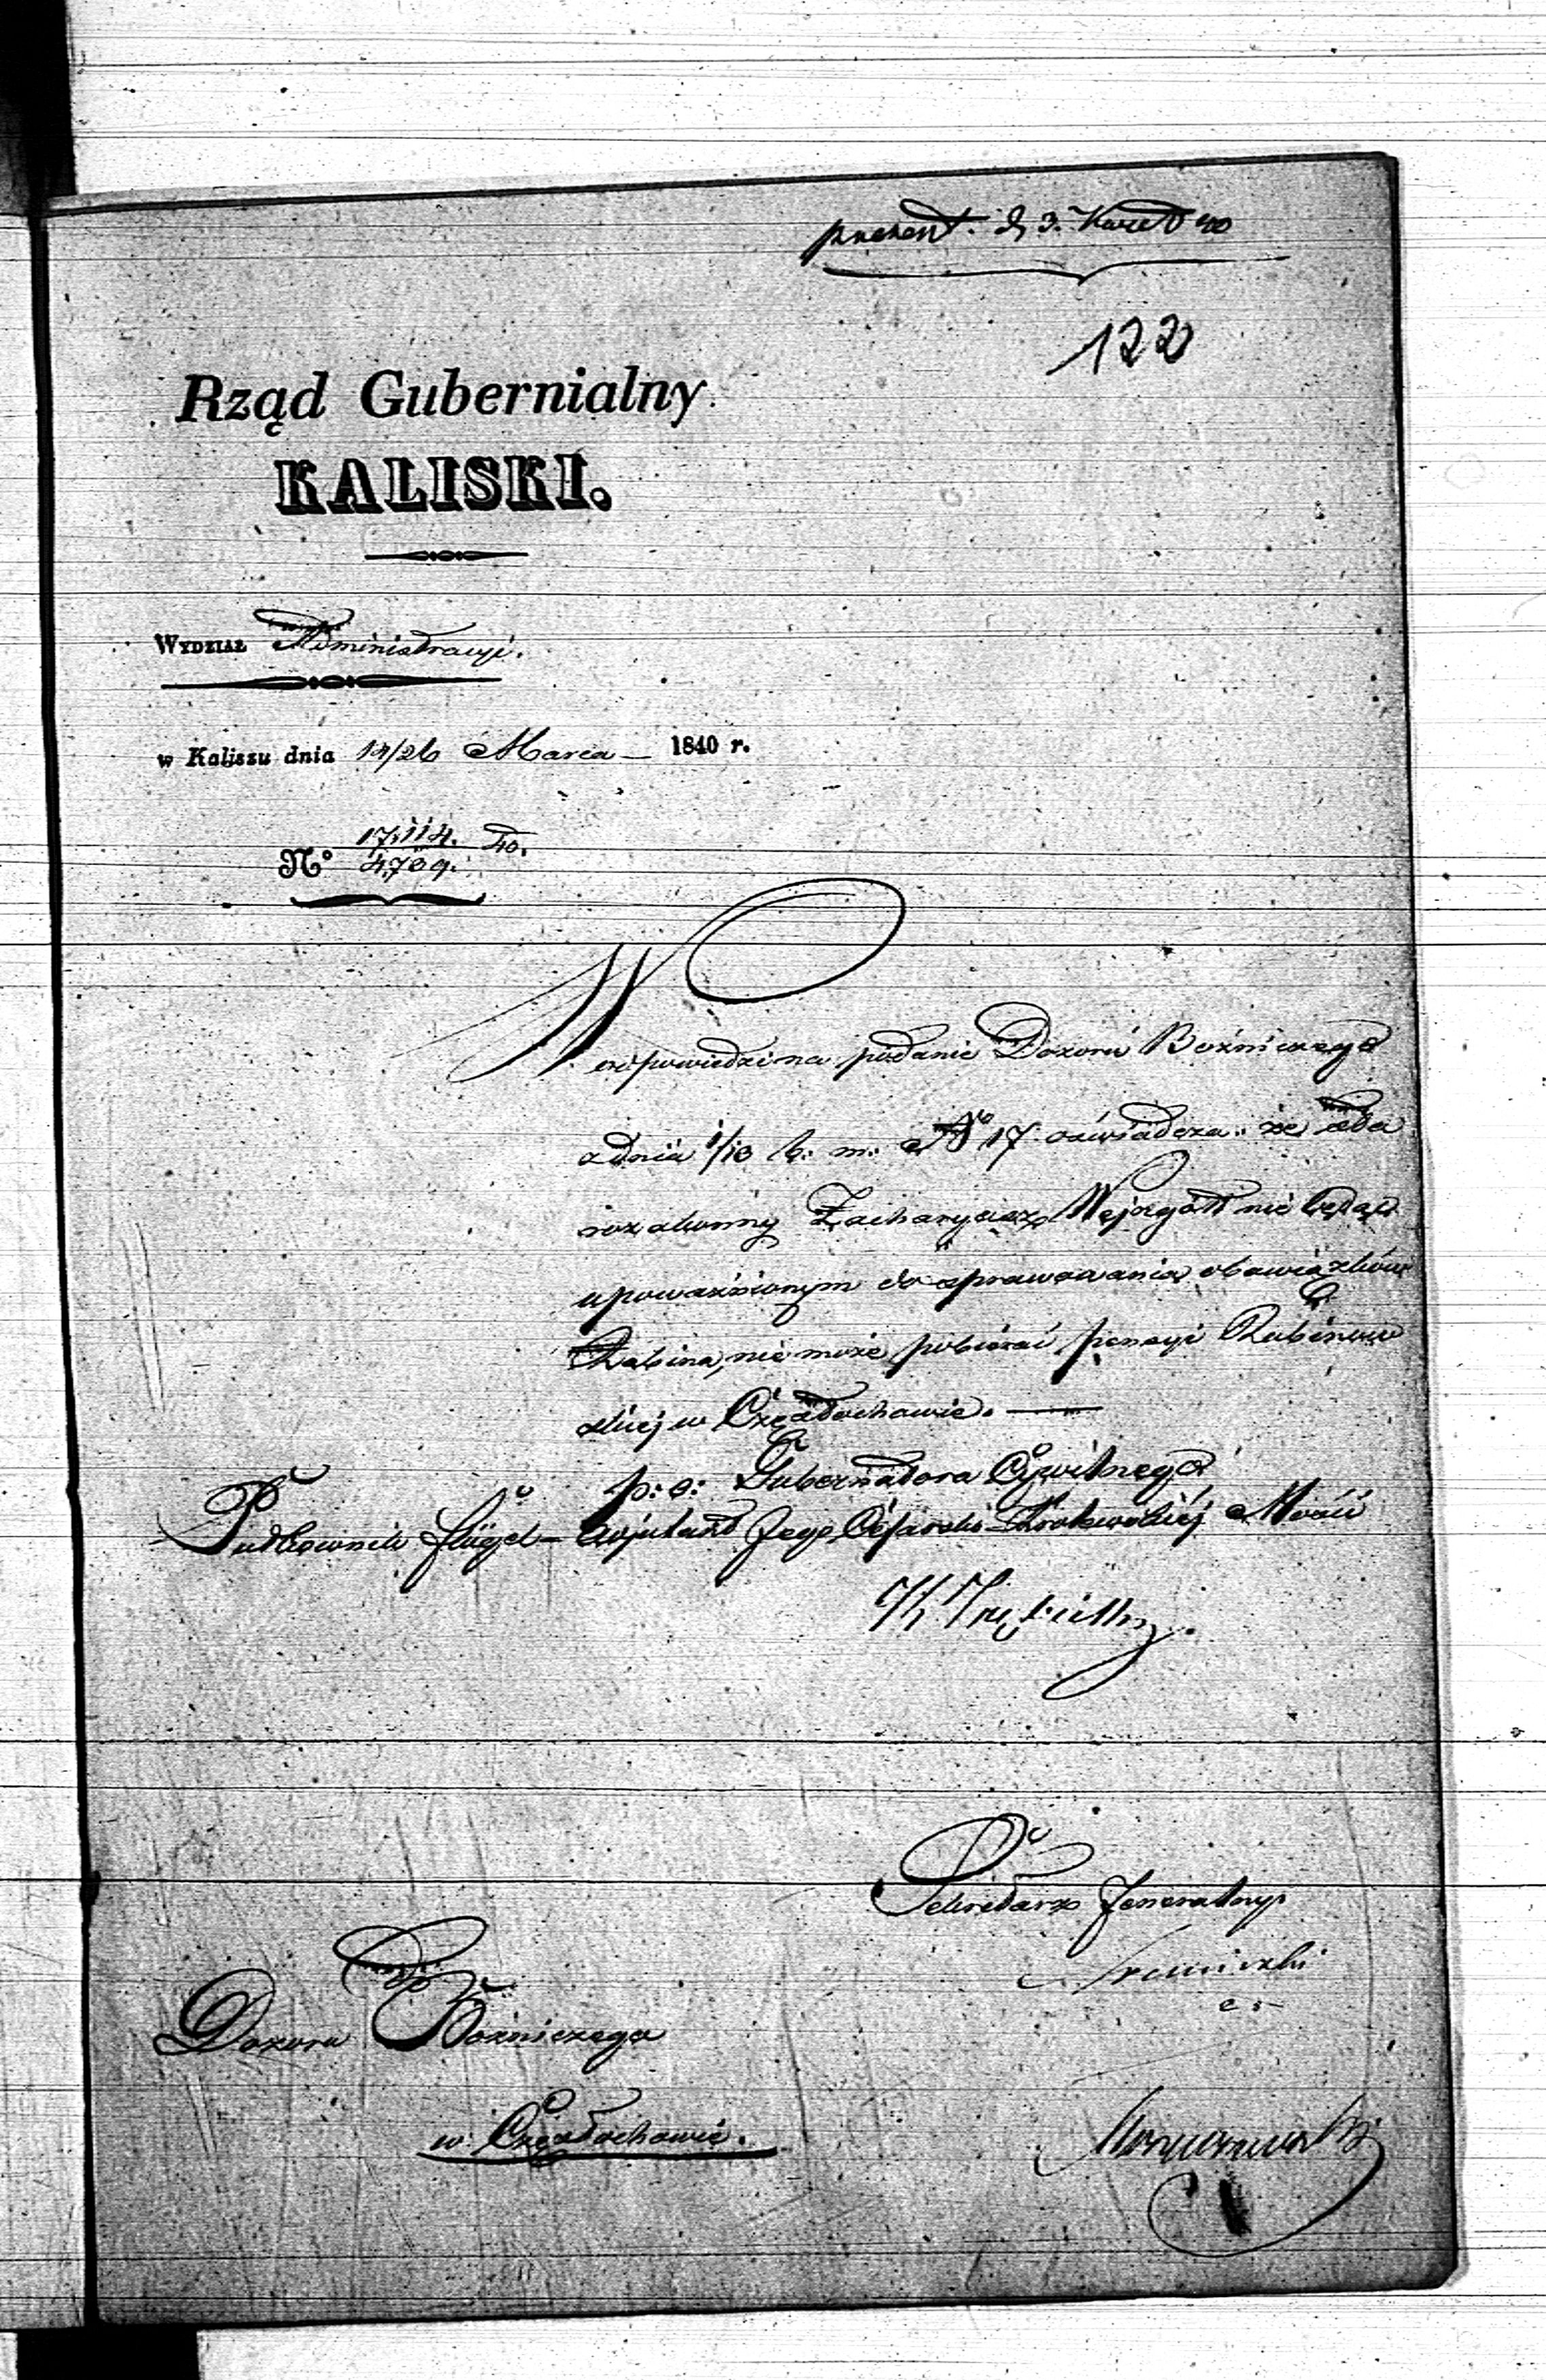 present. d. 3. Kwiet 40
122
Rząd Gubernialny
KALISKI.
WYDZIAŁ Administracyi.
w Kaliszu dnia 14/26 Marca — 1840 r.
No 17,114. / 4,709. 40.
W odpowiedzi na podanie Dozoru Bożniczego
z dnia 1/13 b. m. No 17 oświadcza że Sta
rozakonny Zacharyasz Wejngott nie będąc
upoważnionym do sprawowania obowiązków
Rabina, nie może pobierać pensyi Rabinow
skiej w Częstochowie. —
p. o. Gubernatora Cywilnego
Pułkownik Flügel-Adjutant Jego Cesarsko-Królewskiej Mości
Sekretarz Jeneralny
Dozoru Bożniczego
w Częstochowie.